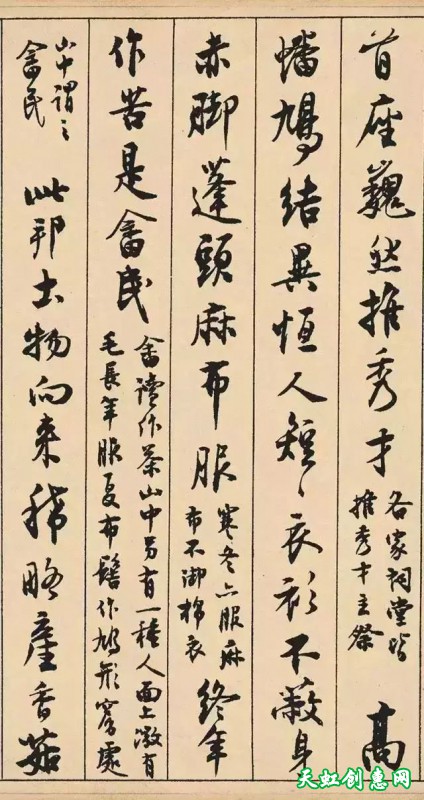 首座巍然推秀才
各家祠堂皆
推秀才主祭
高
蟠鳩結異恒人短〻衣衫不蔽身
赤脚蓬頭麻布服
寒冬亦服麻
布不御棉衣
終年
作苦是畲民
畲讀作茶山中另有一種人面上微有
毛長年服夏布髻作鳩形窩處
山中謂之
畲民
此邦土物向来稀略產香菇
天虹创惠网